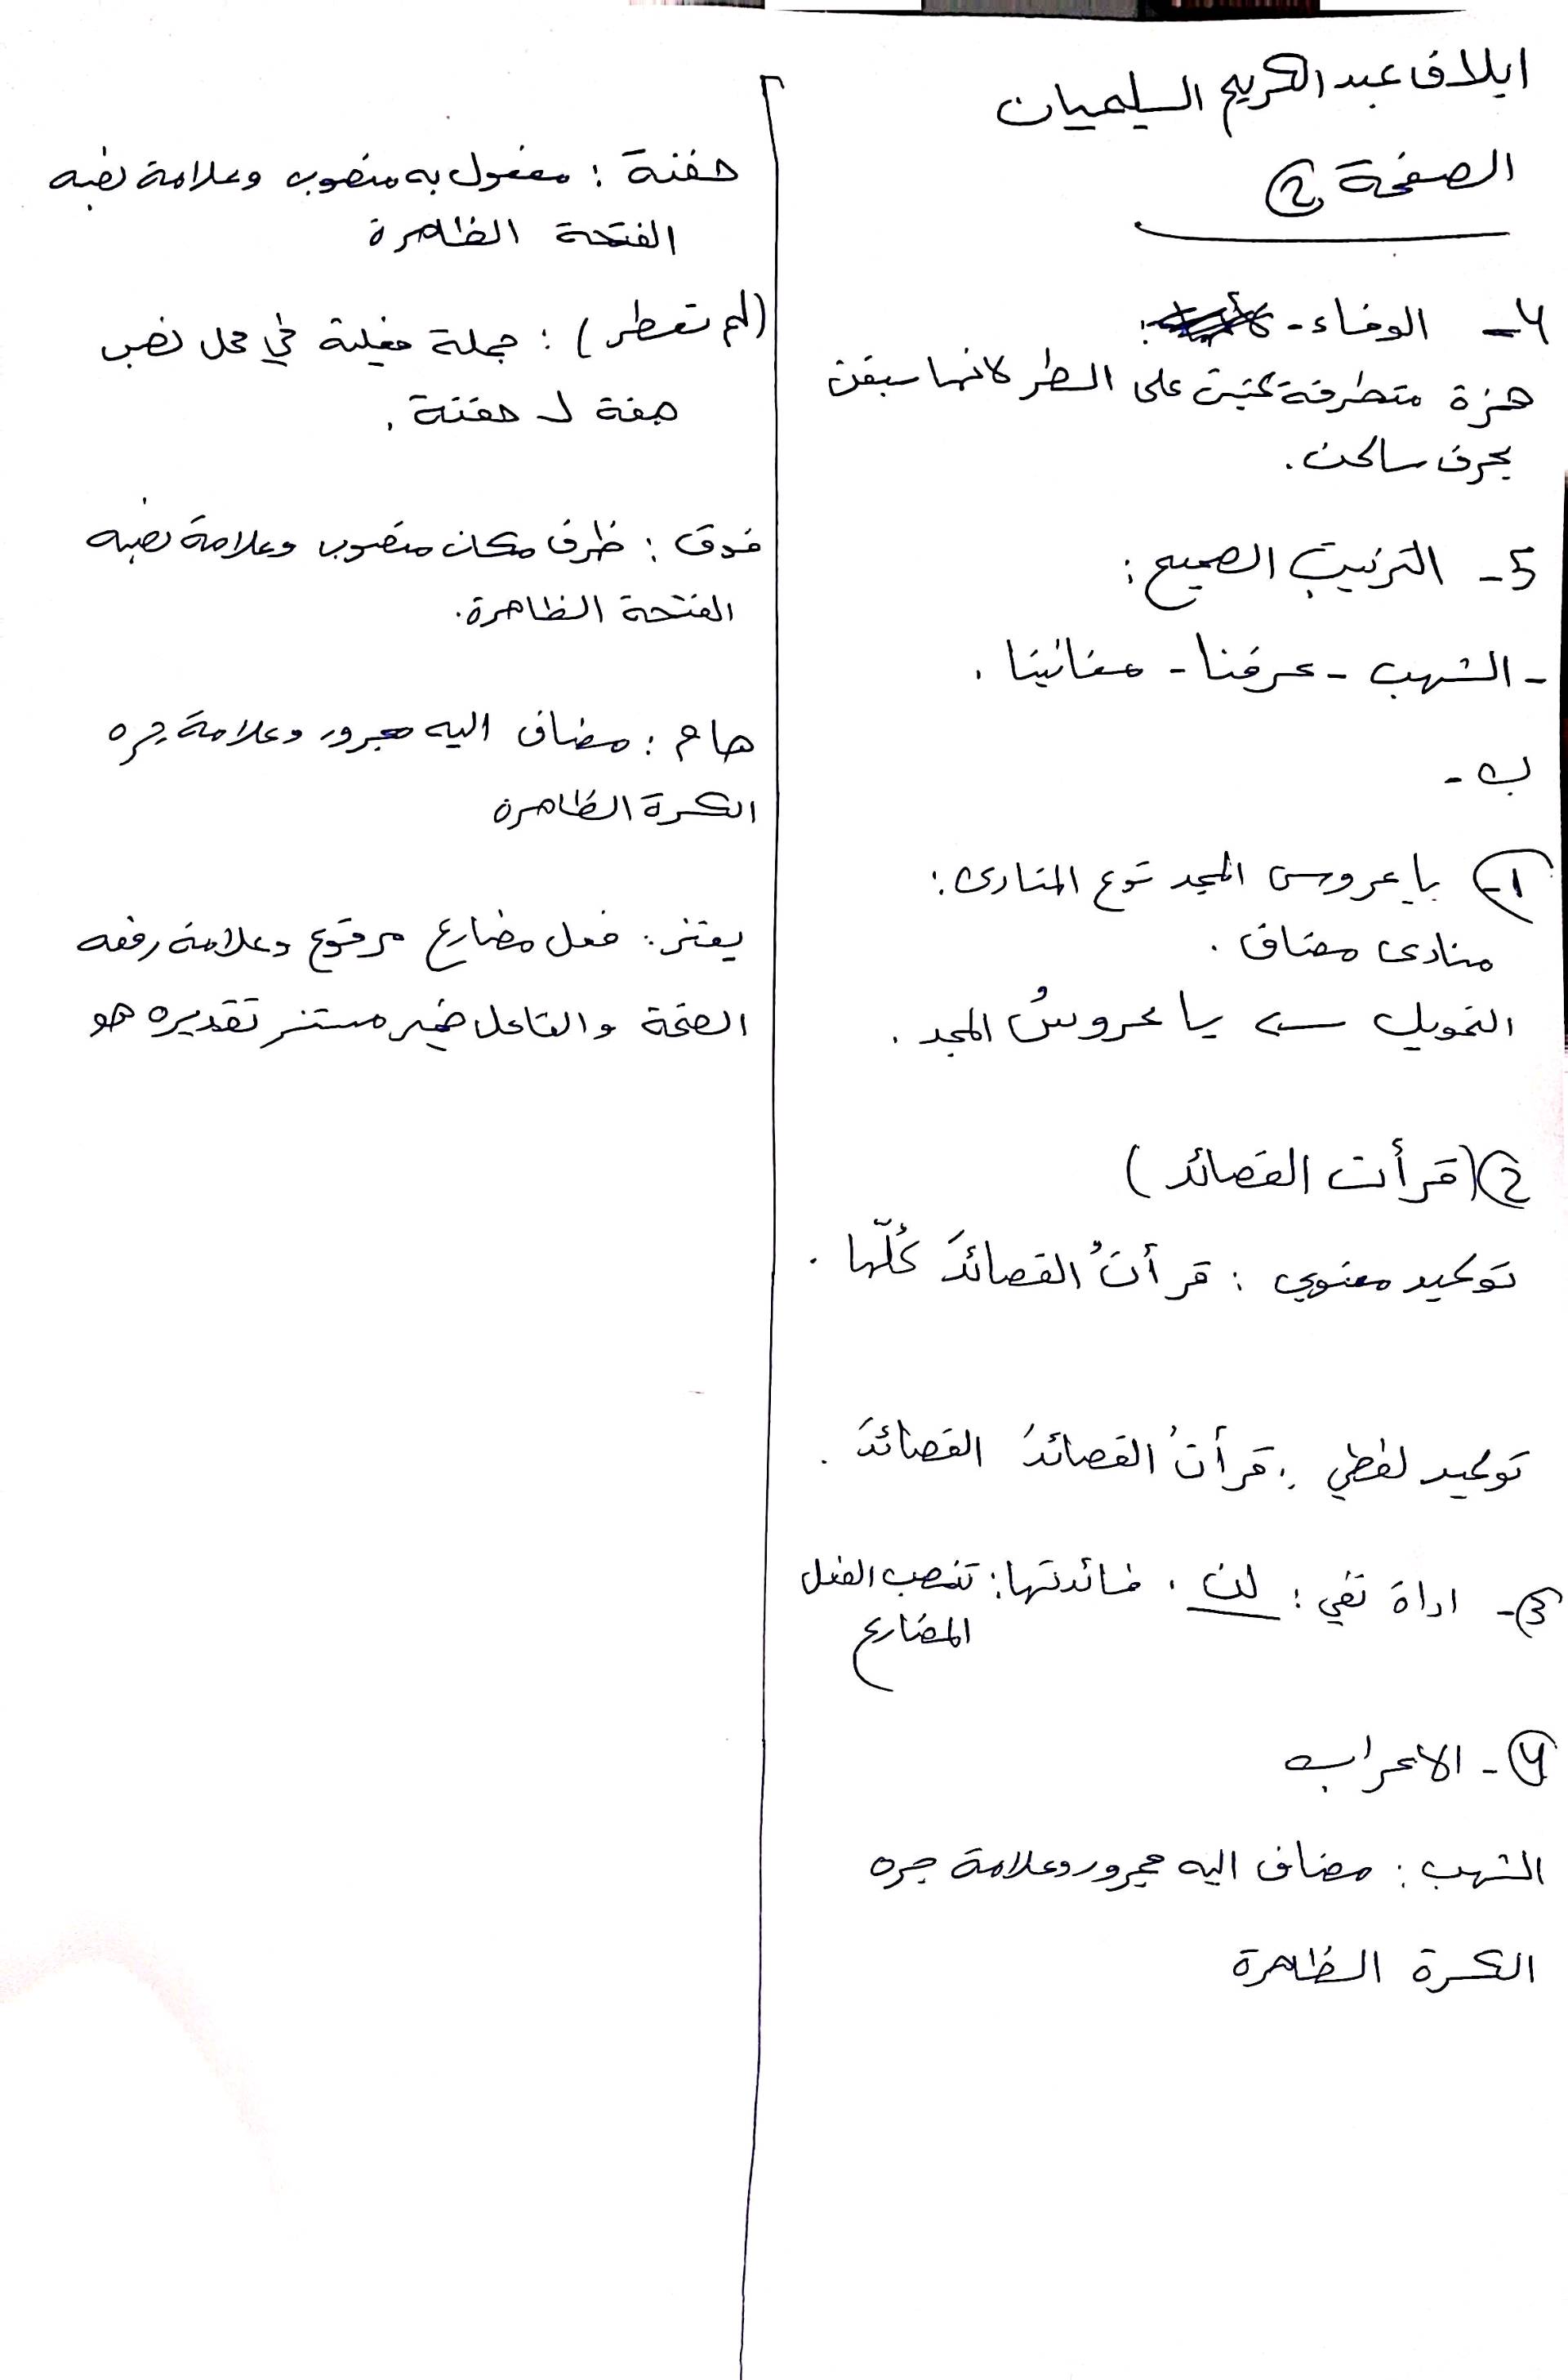 ايلاف عبد الكريم السليميان
الصفحة ②
4- الوفاء -
همزة متطرفة كتبت على السطر لانها سبقت
بحرف ساكن .
5- الترتيب الصحيح :
- الشهب - عرفنا - مغانينا .
ب -
①- يا عروس المجد نوع المنادى :
منادى مضاف .
التحويل ← يا عروسُ المجد .
② (قرأت القصائد)
توكيد معنوي : قرأتُ القصائدَ كُلّها .
توكيد لفظي : قرأتُ القصائدَ القصائدَ .
③- اداة نفي : لن . فائدتها : تنصب الفعل
المضارع
④- الاعراب
الشهب : مضاف اليه مجرور وعلامة جره
الكسرة الظاهرة
حفنة : مفعول به منصوب وعلامة نصبه
الفتحة الظاهرة
(لم تعطر) : جملة فعلية في محل نصب
صفة لـ حفنة .
فوق : ظرف مكان منصوب وعلامة نصبه
الفتحة الظاهرة .
هام : مضاف اليه مجرور وعلامة جره
الكسرة الظاهرة
يعتز : فعل مضارع مرفوع وعلامة رفعه
الضمة والفاعل ضمير مستتر تقديره هو